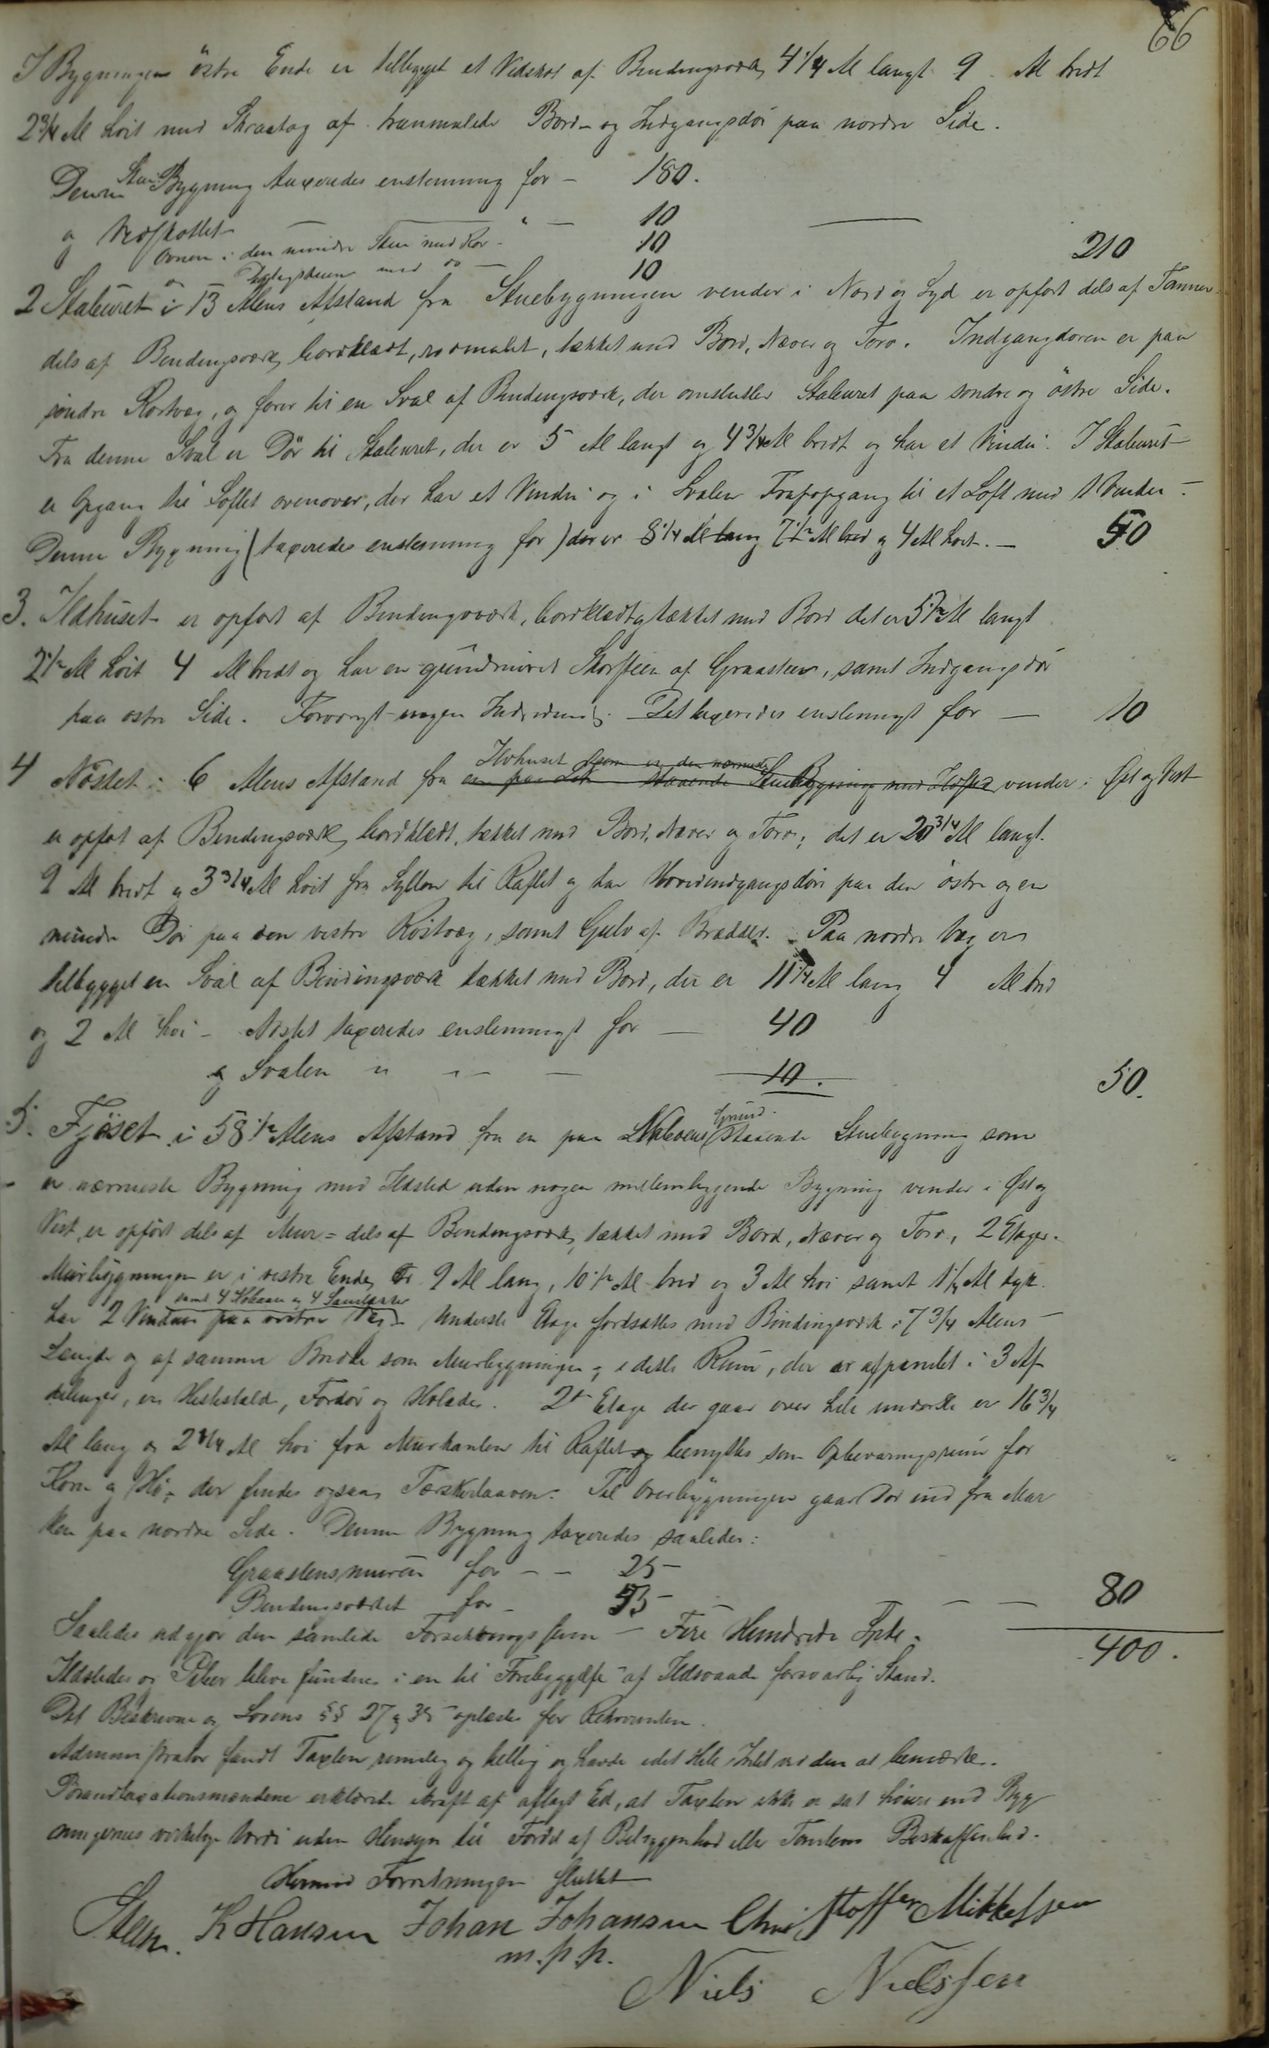 66
I Bygningen östre Ende er tilbygget et Vedskot af Bindingsværk, 4 1/4 Al langt 9 Al bredt
2 3/4 Al høit med Skraatag af tranmalede Bord og Indgangsdör paa nordre Side.
Denne Stue Bygning taxeredes enstemmig for - 180.
og Vedskottet " - 10
Ovnen i den mindre Stue med Rør - 10 210
Dagligstuen med do - 10
2 Staburet i 13 Alens Afstand fra Stuebygningen vender i Nord og Syd er opført dels af Tømmer
dels af Bindingsværk, bordklædt, rødmalet, tækket med Bord, Næver og Torv. Indgangdøren er paa
söndre Røstvæg, og fører til en Sval af Bindingsværk, der omslutter Staburet paa søndre og östre Side.
Fra denne Sval er Dör til Staburet, der er 5 Al langt og 4 3/4 Al bredt og har et Vindu. I Staburet
er Opgang til Loftet ovenover, der har et Vindu og i Svalen Trapopgang til et Loft med 1 Vindu.
Denne Bygning (taxeredes enstemmig for) der er 8 1/4 Al lang 7 1/2 Al bred og 4 Al høi. - 50
3. Ildhuset er opført af Bindingsværk, bordklædt og tækket med Bord det er 5 1/2 Al langt
2 1/2 Al høit 4 Al bredt og har en grundmuret Skorsteen af Graasteen, samt Indgangsdör
paa østre Side. Forövrigt ingen Indredning. Det taxeredes enstemmigt for - 10
4 Nöstet i 6 Alens Afstand fra Ildhuset som er den nærmeste Stuebygning med Ildsted, vender i Øst og Vest
er opført af Bindingsværk, bordklædt, tækket med Bord, Næver og Torv; det er 20 3/4 Al langt.
9 Al bredt og 3 3/4 Al høit fra Syllen til Raftet og har Hovedindgangsdör paa den östre og en
mindre Dör paa den vestre Röstvæg, samt Gulv af Brædder. Paa nordre Væg er
tilbygget en Sval af Bindingsværk tækket med Bord, der er 11 1/4 Al lang 4 Al bred
og 2 Al høi - Nöstet taxeredes enstemmigt for - 40
og Svalen " " - - 10. 50.
5. Fjöset i 58 1/2 Alens Afstand fra en paa Grund staaende Stuebygning som
er nærmeste Bygning med Ildsted uden nogen mellemliggende Bygning vender i Øst og
Vest, er opført dels af Muur - dels af Bindingsværk, tækket med Bord, Næver og Torv, 2 Etager.
Muurbygningen er i vestre Ende, er 9 Al lang, 10 1/2 Al bred og 3 Al høi samt 1 1/4 Al tyk
har 2 Vinduer paa vestre Væg samt 4 og 4 Underste Etage fortsættes med Bindingsværk i 7 3/4 Alens
Længde og af samme Bredde som Muurbygningen og i dette Rum, der er afpanelet i 3 Af
delinger, er Hestestald, Fordör og Hölade. 2den Etage der gaar over hele underste er 16 3/4
Al lang og 2 3/4 Al høi fra Murkanten til Raftet og benyttes som Opbevaringsrum for
Korn og Hö; der findes ogsaa Tærskelaaven. Til Overbygningen gaar Dör ind fra Mar
ken paa nordre Side. Denne Bygning taxeredes saaledes:
Graastensmuren for - - 25 -
Bindingsværket for - 55 - - - 80
Saaledes udgjør den samlede Forsikkringssum - Fire Hundrede Spd. - 400.
Ildsteder og Piber bleve fundne i en til Forebyggelse af Ildsvaade forsvarlig Stand.
Det Beskrevne og Lovens §§ 27 og 35 oplæstes for Rekvirenten.
Administrator fandt Taxten rimelig og billig og havde idet Hele Intet ved den at bemærke.
Brandtaxationsmændene erklærede i kraft af aflagt Ed, at Taxten ikke er sat høiere end Byg
ningernes virkelige Værdi uden Hensyn til Fordel af Beliggenhed eller Tomtens Beskaffenhed.
Hermed Forretningen sluttet
Steen. K Hansen Johan Johansen Christoffer Mikkelsen
m.p.p.
Niels Nielssen